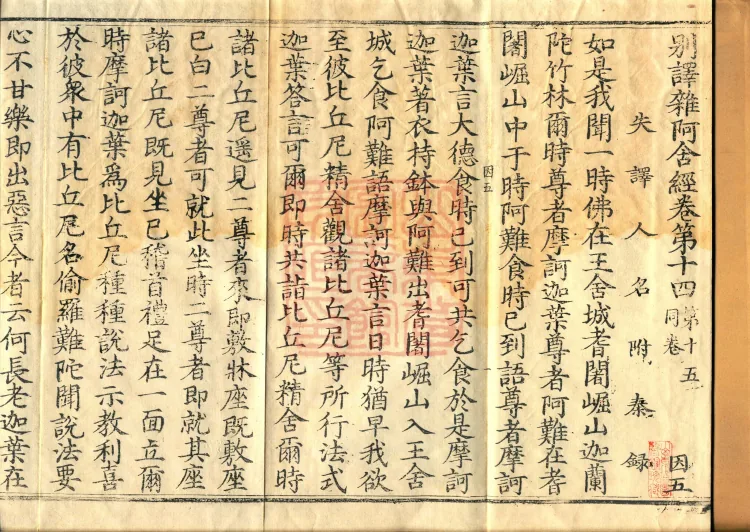 別譯雜阿含經卷第十四 第十五同卷 因五
失譯人名附秦錄
如是我聞一時佛在王舍城耆闍崛山迦蘭
陀竹林爾時尊者摩訶迦葉尊者阿難在耆
闍崛山中于時阿難食時已到語尊者摩訶
迦葉言大德食時已到可共乞食於是摩訶
因五
迦葉著衣持鉢與阿難出耆闍崛山入王舍
城乞食阿難語摩訶迦葉言日時猶早我欲
至彼比丘尼精舍觀諸比丘尼等所行法式
迦葉答言可爾即時共詣比丘尼精舍爾時
諸比丘尼遥見二尊者來即敷牀座既敷座
已白二尊者可就此坐時二尊者即就其座
諸比丘尼既見坐已稽首禮足在一面立爾
時摩訶迦葉爲比丘尼種種說法示教利喜
於彼衆中有比丘尼名偷羅難陀聞說法要
心不甘樂即出惡言今者云何長老迦葉在